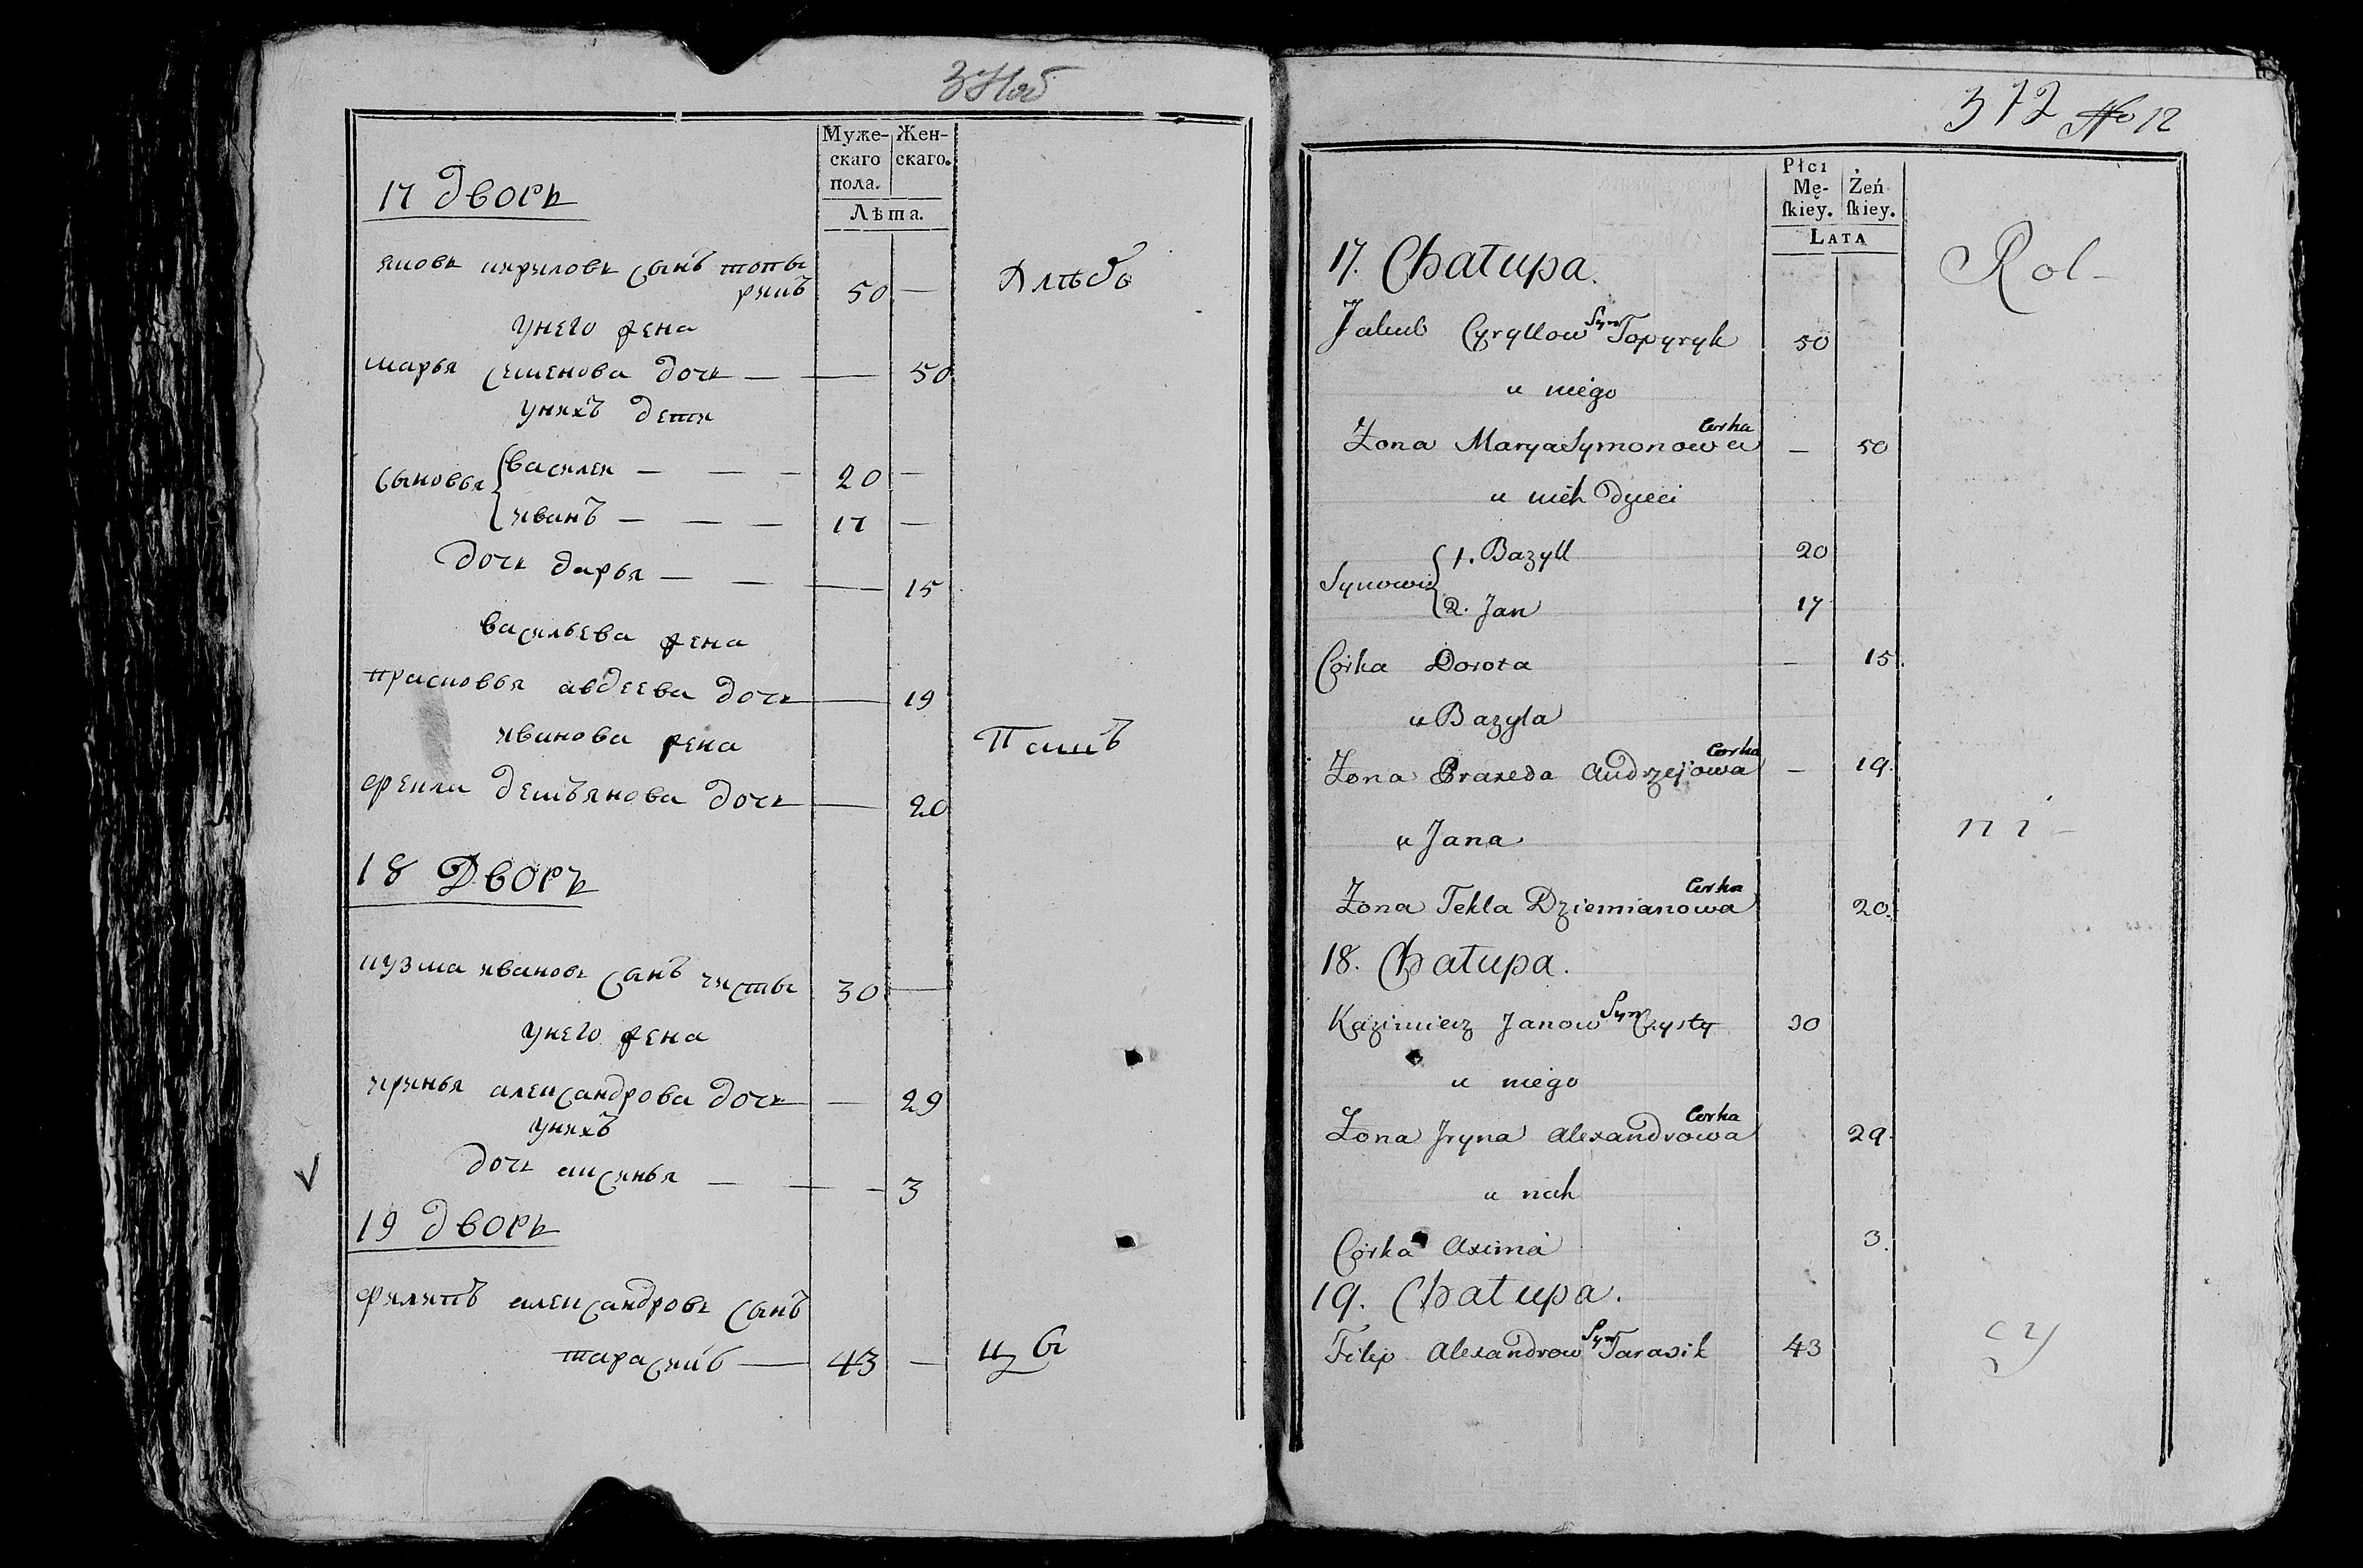 Муже-
скаго
пола.
Жен-
скаго.
Лѣта.
17 Дворъ
яковъ кириловъ сынъ топы
рикъ 50 —
унего жена
марья семенова дочь — — 50
унихъ дети
сыновья
василеи — — — 20 —
иванъ — — — 17 —
дочь дарья — — — 15
васильева жена
прасковья авдеева дочь — 19
иванова жена
фекла демъянова дочь — 20
18 Дворъ
кузма ивановъ сынъ чисты 30 —
унего жена
иринья александрова дочь — 29
унихъ
дочь аксинья — — — 3
19 дворъ
филипъ александровъ сынъ
тарасикъ — 43 —
Хлѣбо
Пашъ
цы
372 No 12
Płci
Mę-
skiey.
Żeń
skiey.
LATA
17. Chałupa.
Jakub Cyryllow Syn Topyryk 50
u niego
Żona Marya Symonowa Corka — 50
u nich Dzieci
Synowie
1. Bazyll 20
2. Jan 17
Córka Dorota — 15.
u Bazyla
Żona Praxeda Andrzejowa Corka — 19.
u Jana
Żona Tekla Dziemianowa Corka 20.
18. Chałupa.
Kazimierz Janow Syn Czysty 30
u niego
Żona Jryna Alexandrowa Corka 29.
u nich
Córka Axinia 3.
19. Chałupa.
Filip Alexandrow Syn Tarasik 43
Rol-
ni-
cy